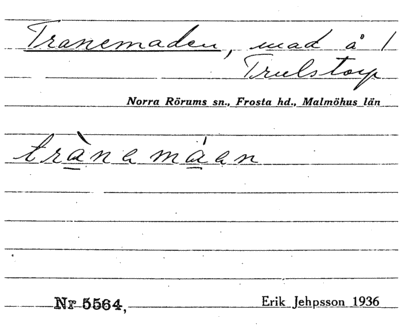 Tranemaden, mad å 1
Trulstorp
Norra Rörums sn., Frosta hd., Malmöhus län
trànamáan
Nr 5564,
Erik Jehpsson 1936